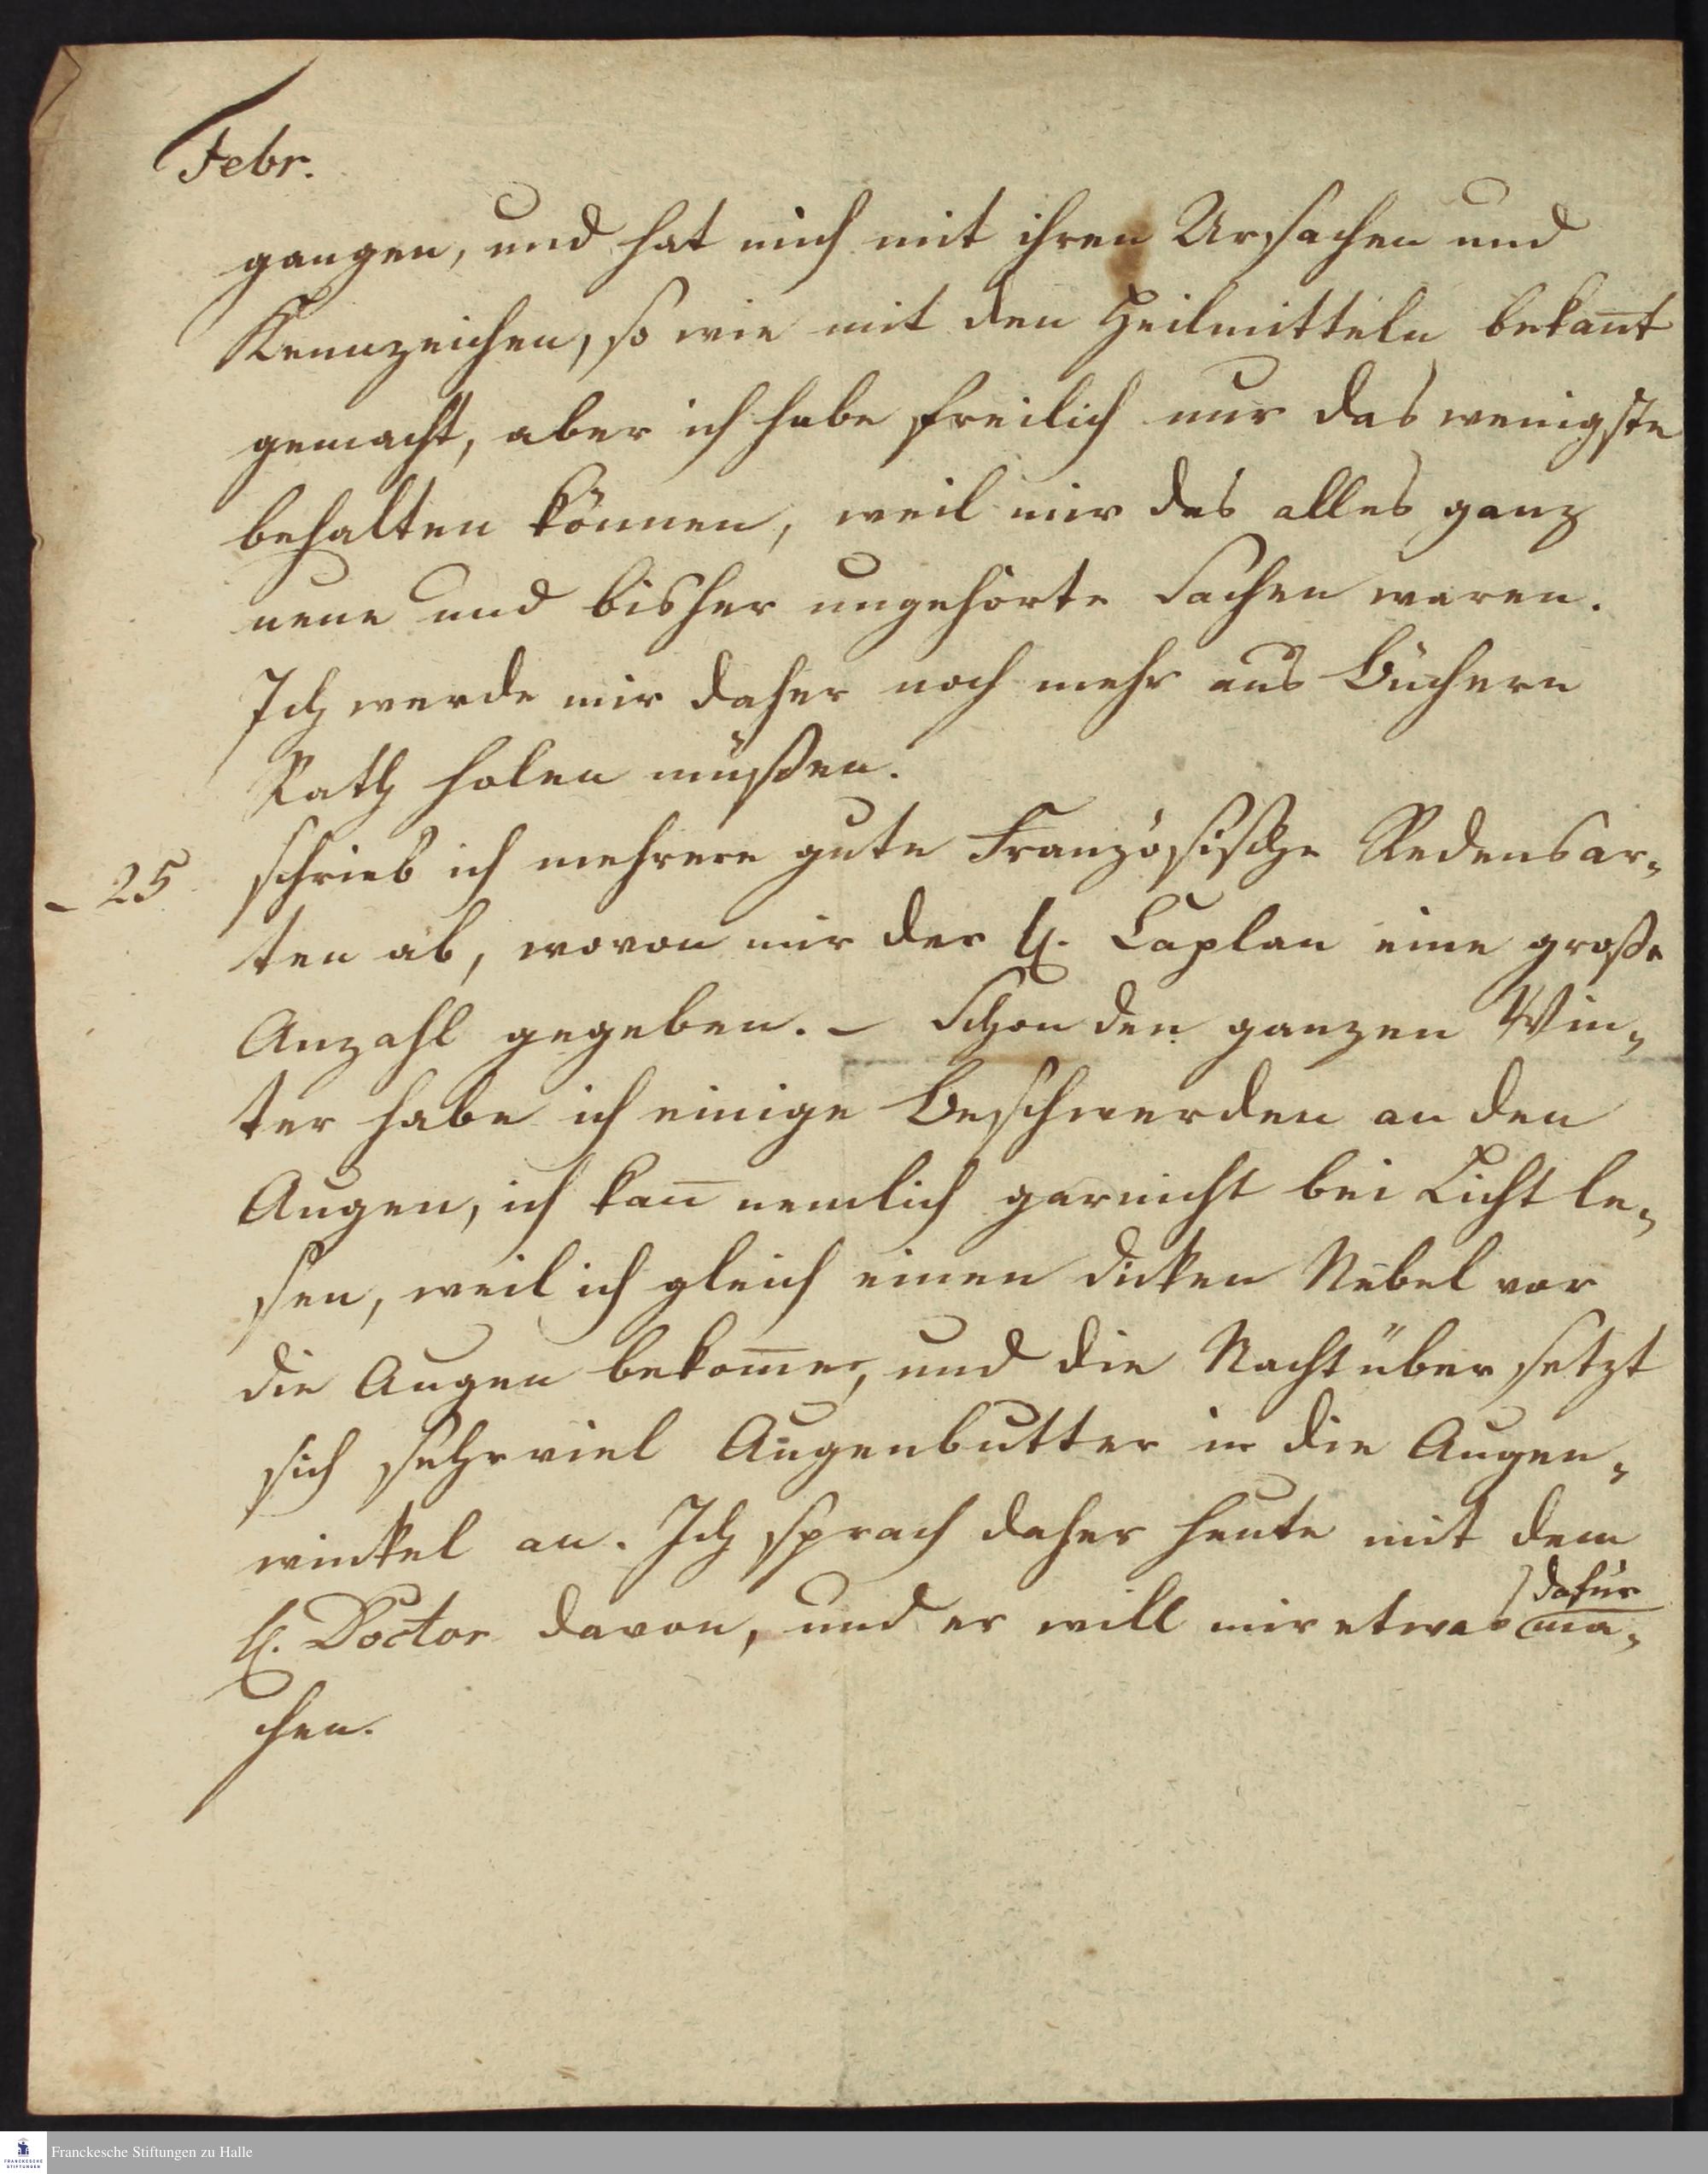 Febr.
gangen, und hat mich mit ihren Ursachen und
Kennzeichen, so wie mit den Heilmitteln bekan̅t
gemacht, aber ich habe freilich nur das wenigste
behalten können, weil mir das alles ganz
neue und bisher ungehörte Sachen waren.
Ich werde mir daher noch mehr aus Büchern
Rath holen müßen.
– 25 schrieb ich mehrere gute Französische Redensar„
ten ab, wovon mir der H. Caplan eine große
Anzahl gegeben. – Schon den ganzen Win„
ter habe ich einige Beschwerden an den
Augen, ich kan̅ nemlich garnicht bei Licht le„
sen, weil ich gleich einen dicken Nebel vor
die Augen bekom̅e, und die Nacht über setzt
sich sehr viel Augenbutter in die Augen„
winkel an. Ich sprach daher heute mit dem
dafür
H. Doctor davon, und er will mir etwas ma„
chen.
Franckesche Stiftungen zu Halle